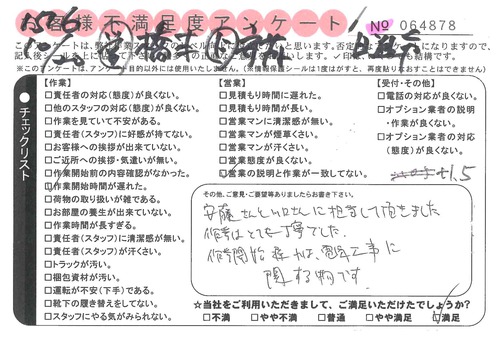 お客様不満足度アンケート
№ 064878
【作業】
□責任者の対応(態度)が良くない。
□他のスタッフの対応(態度)が良くない。
□作業を見ていて不安がある。
□責任者(スタッフ)に好感が持てない。
□お客様への挨拶が出来ていない。
□ご近所への挨拶・気遣いが無い。
□作業開始前の内容確認がなかった。
作業開始時間が遅れた。
□荷物の取り扱いが雑である。
□お部屋の養生が出来ていない。
□作業時間が長すぎる。
□責任者(スタッフ)に清潔感が無い。
□責任者(スタッフ)が汗くさい。
□トラックが汚い。
□梱包資材が汚い。
□運転が不安(下手)である。
□靴下の履き替えをしてない。
□スタッフにやる気がみられない。
チェックリスト
【営業】
□見積もり時間に遅れた。
□見積もり時間が長い。
□営業マンに清潔感が無い。
□営業マンが煙草くさい。
□営業マンが汗くさい。
□営業態度が良くない。
□営業の説明と作業が一致してない。
【受付・その他】
□電話の対応が良くない。
□オプション業者の説明
・作業が良くない。
□オプション業者の対応
(態度)が良くない。
その他、ご意見・ご要望等ありましたらお書き下さい。
に担当して頂きました
作業はとても丁寧でした.
工事に
関する物です.
☆当社をご利用いただきまして、ご満足いただけたでしょうか?
□不満 □やや不満 □普通 □やや満足 □満足